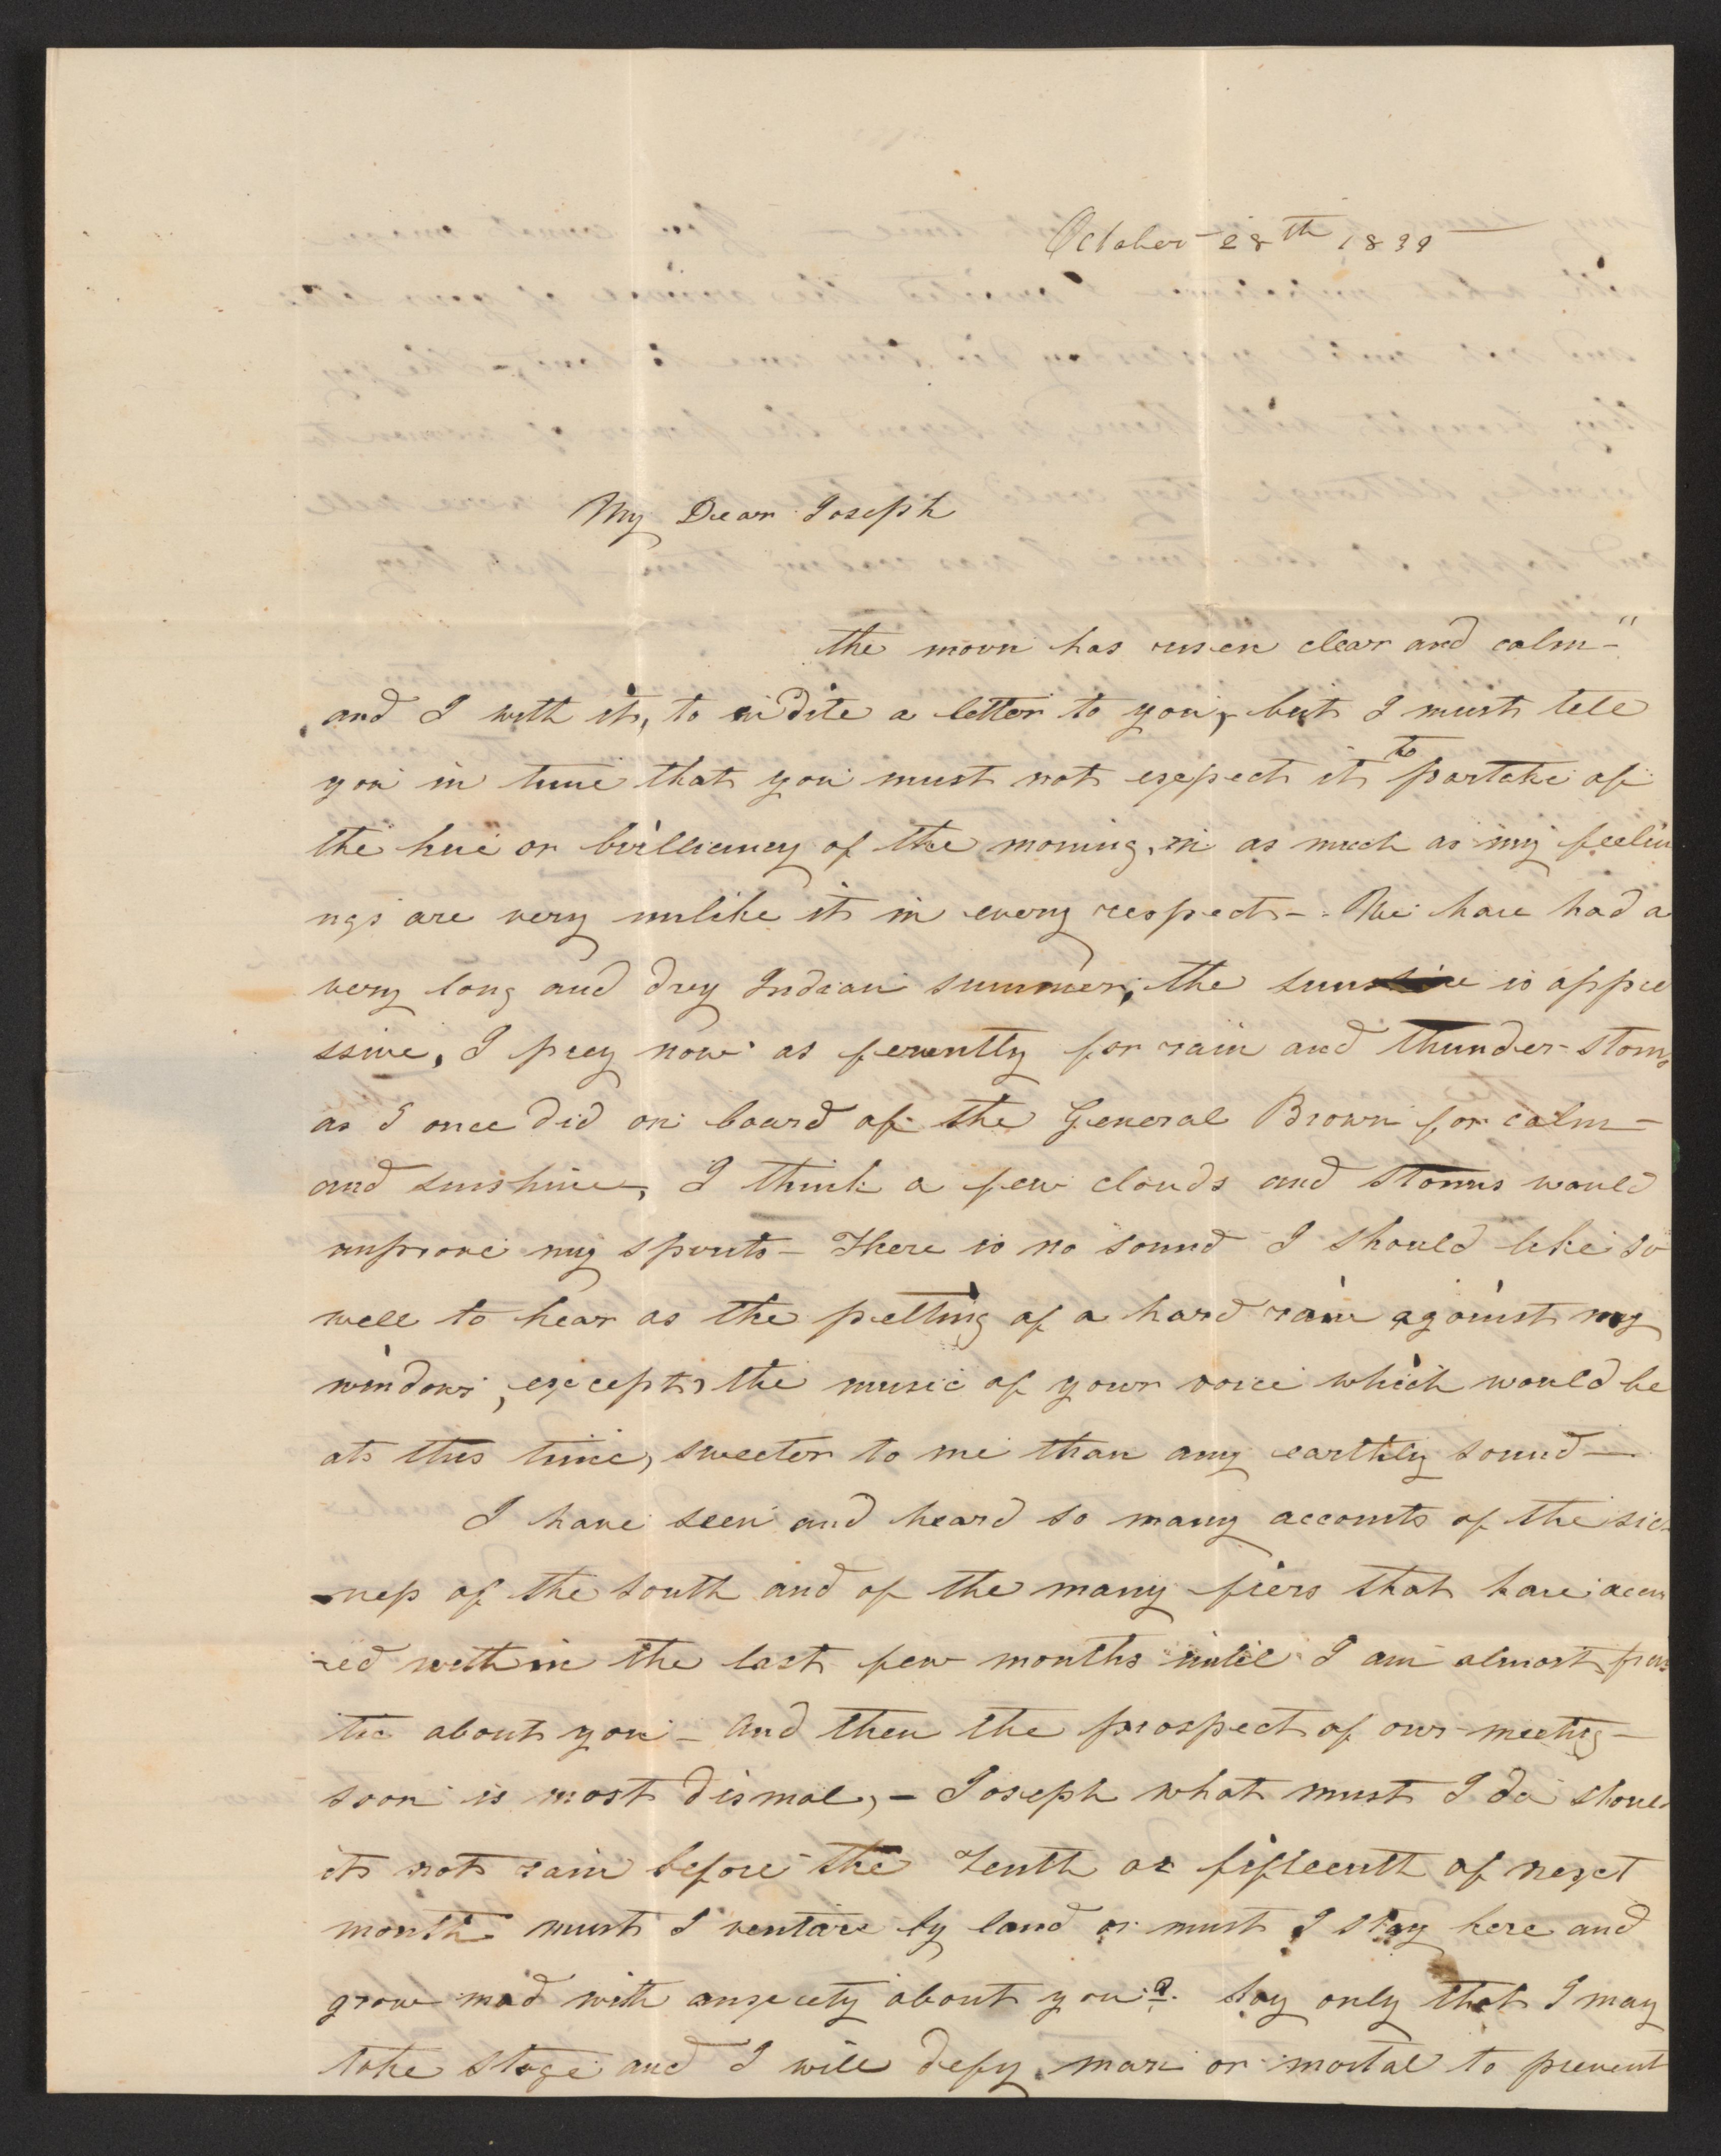 October 28th 1839
My Dear Joseph
the morn has risen clear and calm-"
and I with it, to indite a letter to you, but I must tell
you in time that you must not expect it to partake of
the hue or brilliancy of the morning, in as much as my feelin
ngs are very unlike it in every respect-. We have had a
very long and dry Indian summer, the sun is oppre
ssive, I pray now as fervently for rain and thunder-storms
as I once did on board of the General Brown for calm-
and sunshine, I think a few clouds and storms would
improve my spirits- There is no sound I should like so
well to hear as the pelting of a hard rain against my
window, except the music of your voice which would be
at this time, sweeter to me than any earthly sound-
I have seen and heard so many accounts of the sick
-ness of the South and of the many fiers that have accur
-red within the last few months until I am almost fran
tic about you- and then the prospect of our meeting-
soon is most dismal,- Joseph what must I do should
it not rain before the Tenth or fifteenth of next
month must I venture by land or must I stay here and
grow mad with anxiety about you? Say only that I may
take stage and I will defy man or mortal to prevent